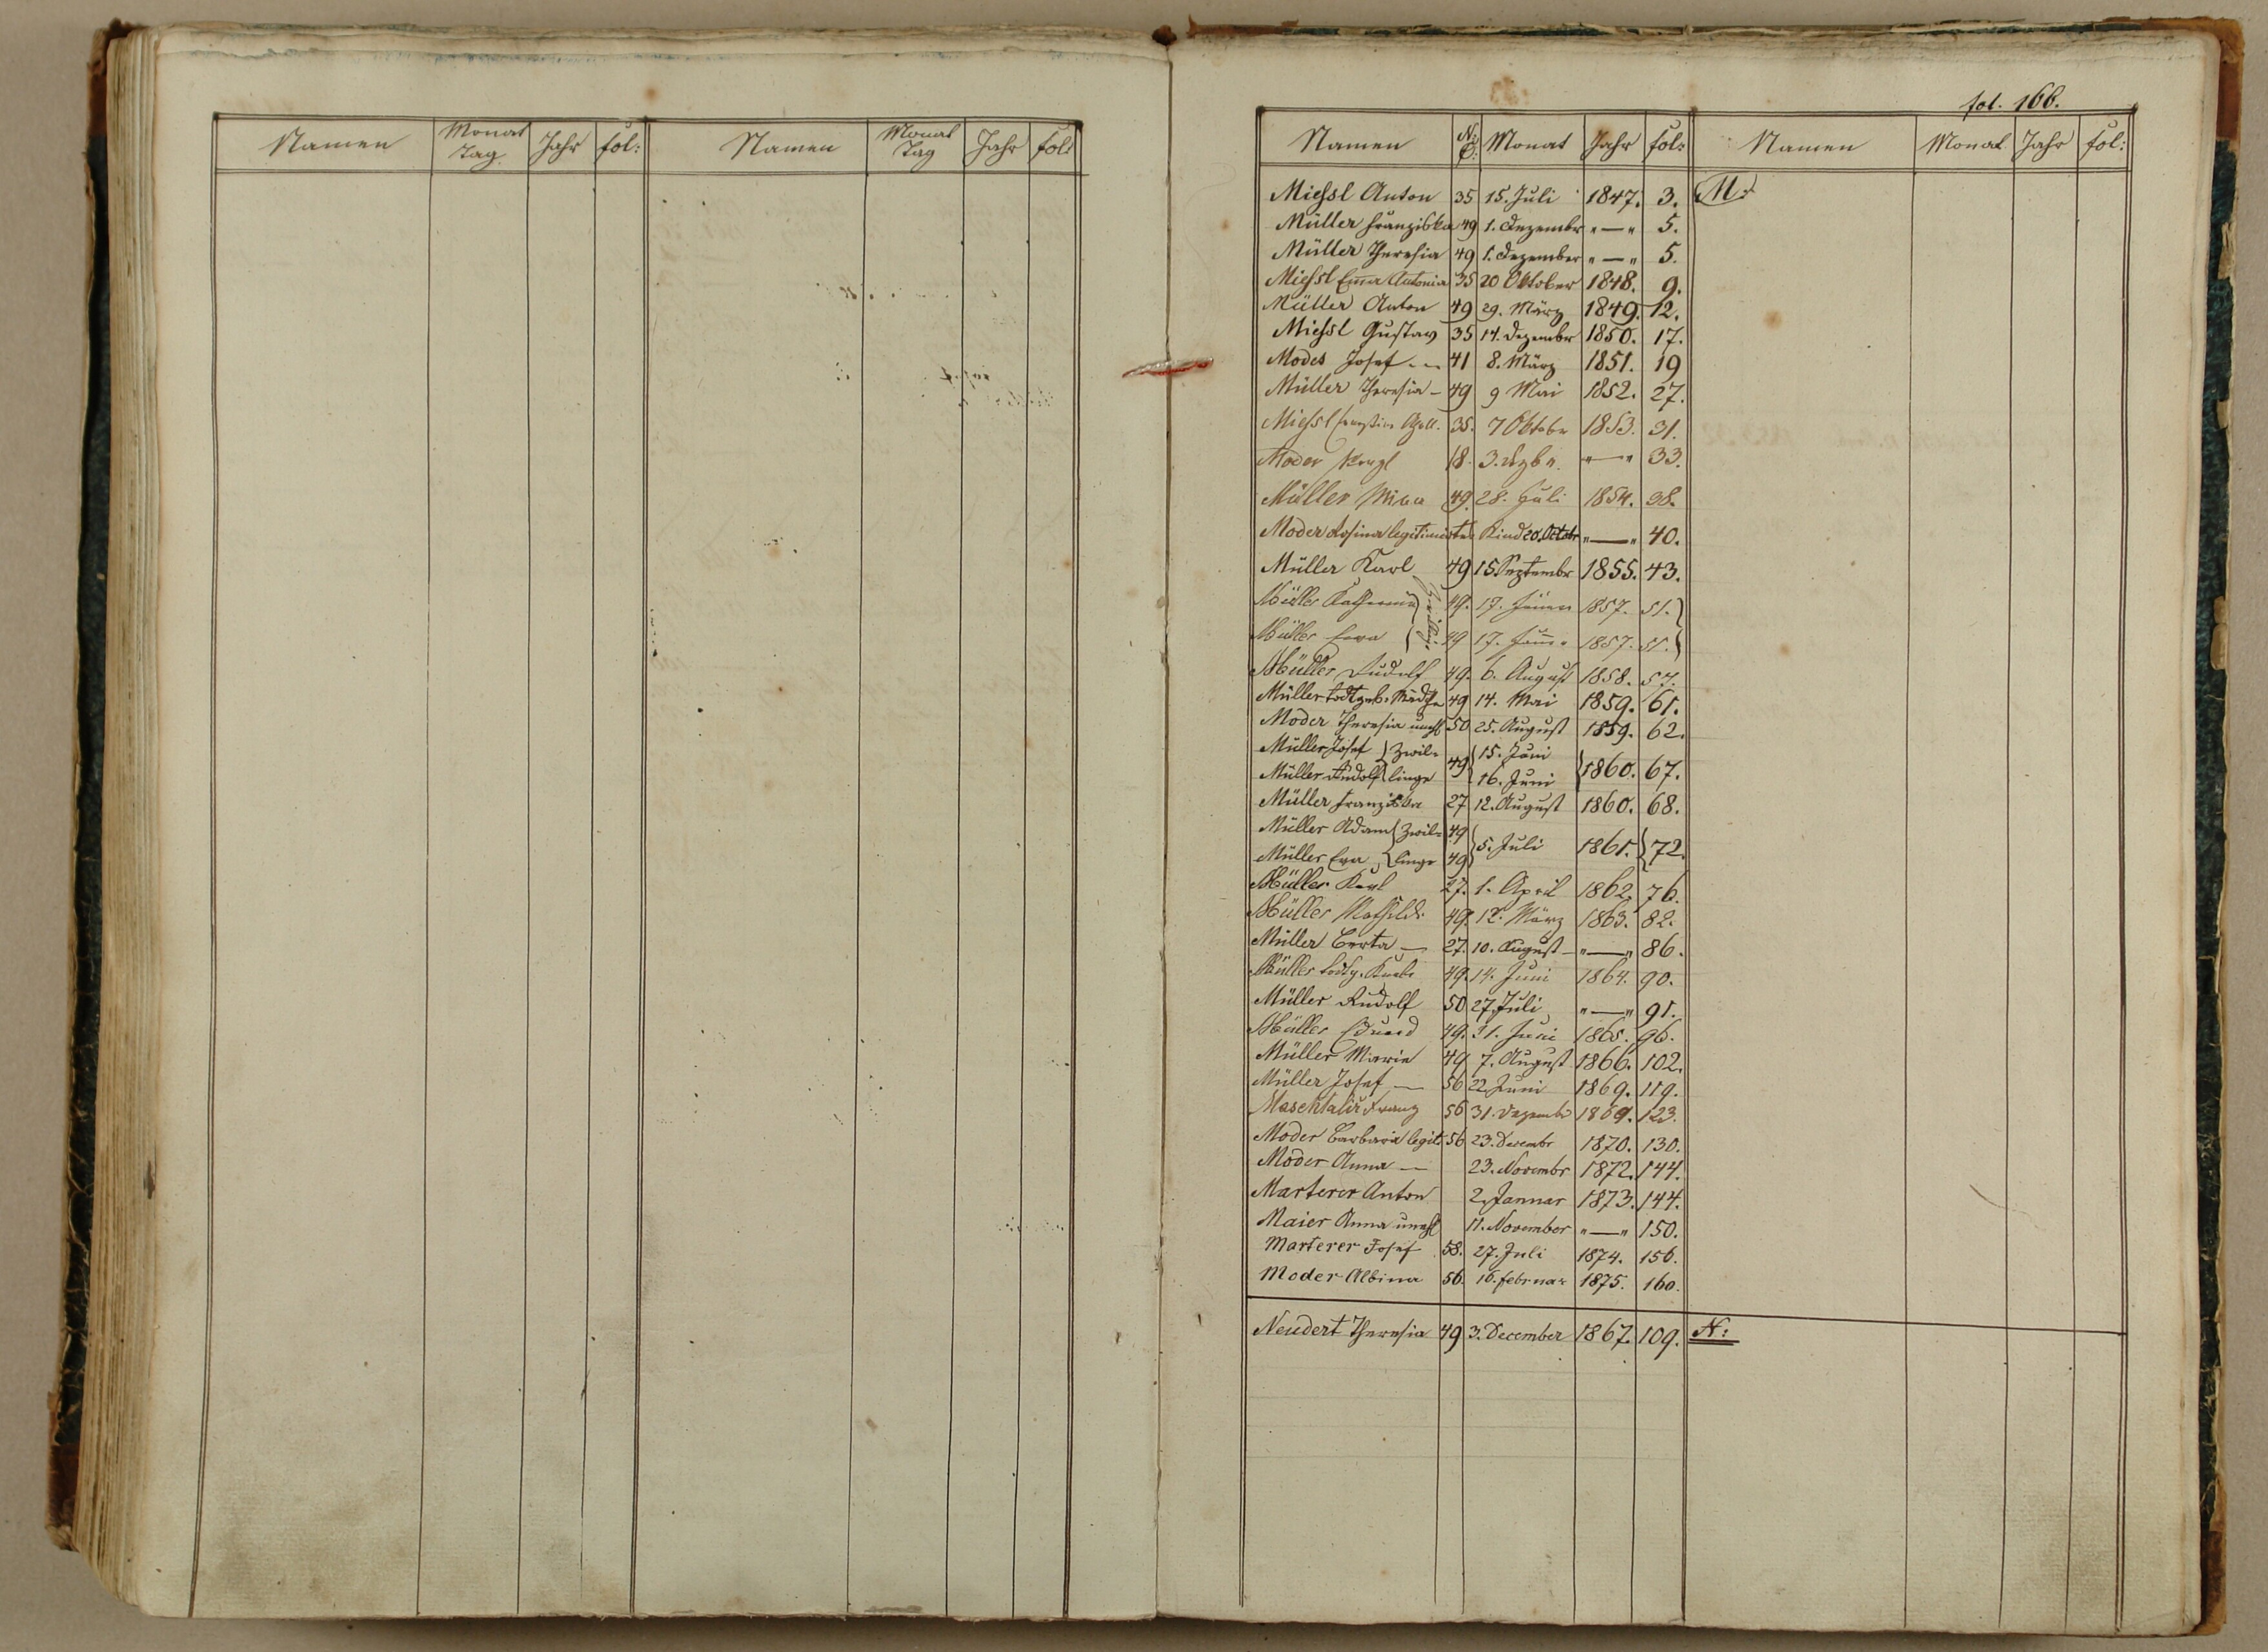 Namen Monat Tag Jahr fol: Namen Monat Tag Jahr fol:
fol. 166.
Namen No: C: Monat Jahr fol: Namen Monat Jahr fol:
Mießl Anton 35 15. Juli 1847. 3. M.
Müller Franziska 49 1. Dezember "—" 5.
Müller Theresia 49 1. Dezember "—" 5.
Mießl Em̅a Antonia 35 20 Oktober 1848. 9.
Müller Anton 49 29. März 1849. 12.
Mießl Gustav 35 14. Dezember 1850. 17.
Modes Josef 41 8. März 1851. 19
Müller Theresia — 49 9 Mai 1852. 27.
Mießl 35. 7 Oktobr 1853. 31.
Moder 18. 3. Dzbr. "—" 33.
Müller 49. 28. Juli 1854. 38.
Moder Rosina legitimirtes Kind 20. Octobr "—" 40.
Müller Karl 49 15. Septembr 1855. 43.
Müller Katharina 49. 17. 1857. 51.
Müller Eva 49 17. 1857. 51.
Müller Rudolf 49. 6. August 1858. 57.
Müller todtgeb. Mädchen 49 14. Mai 1859. 61.
Moder Theresia unehl 50 25. August 1859. 62.
Müller Josef } Zwil- 49 15. Juni 1860. 67.
Müller Rudolf } linge 16. Juni
Müller Franziska 27 12. August 1860. 68.
Müller Adam } Zwil- 49 5. Juli 1861. 72.
Müller Eva } linge 49
Müller Karl 27. 1. April 1862. 76.
Müller Mathilde 49. 12. März 1863. 82.
Müller Berta — 27. 10. August — "—" 86.
Müller todtg. Knabe 49. 14. Juni 1864. 90.
Müller Rudolf 50 27. Juli "—" 91.
Müller Eduard 49. 21. Juni 1865. 96.
Müller Marie 49 7. August 1866. 102.
Müller Josef — 56 22. Juni 1869. 119.
Maschtalir Franz 56 31. Dezembr 1869. 123.
Moder Barbara legit. 56 23. Decembr 1870. 130.
Moder Anna — 23. Novembr 1872. 144.
Marterer Anton 2. Januar 1873. 144.
Maier Anna unehl 11. November "—" 150.
Marterer Josef 58. 27. Juli 1874. 156.
Moder Albina 56. 16. Februar 1875. 160.
Neudert Theresia 49 3. December 1867. 109. N: